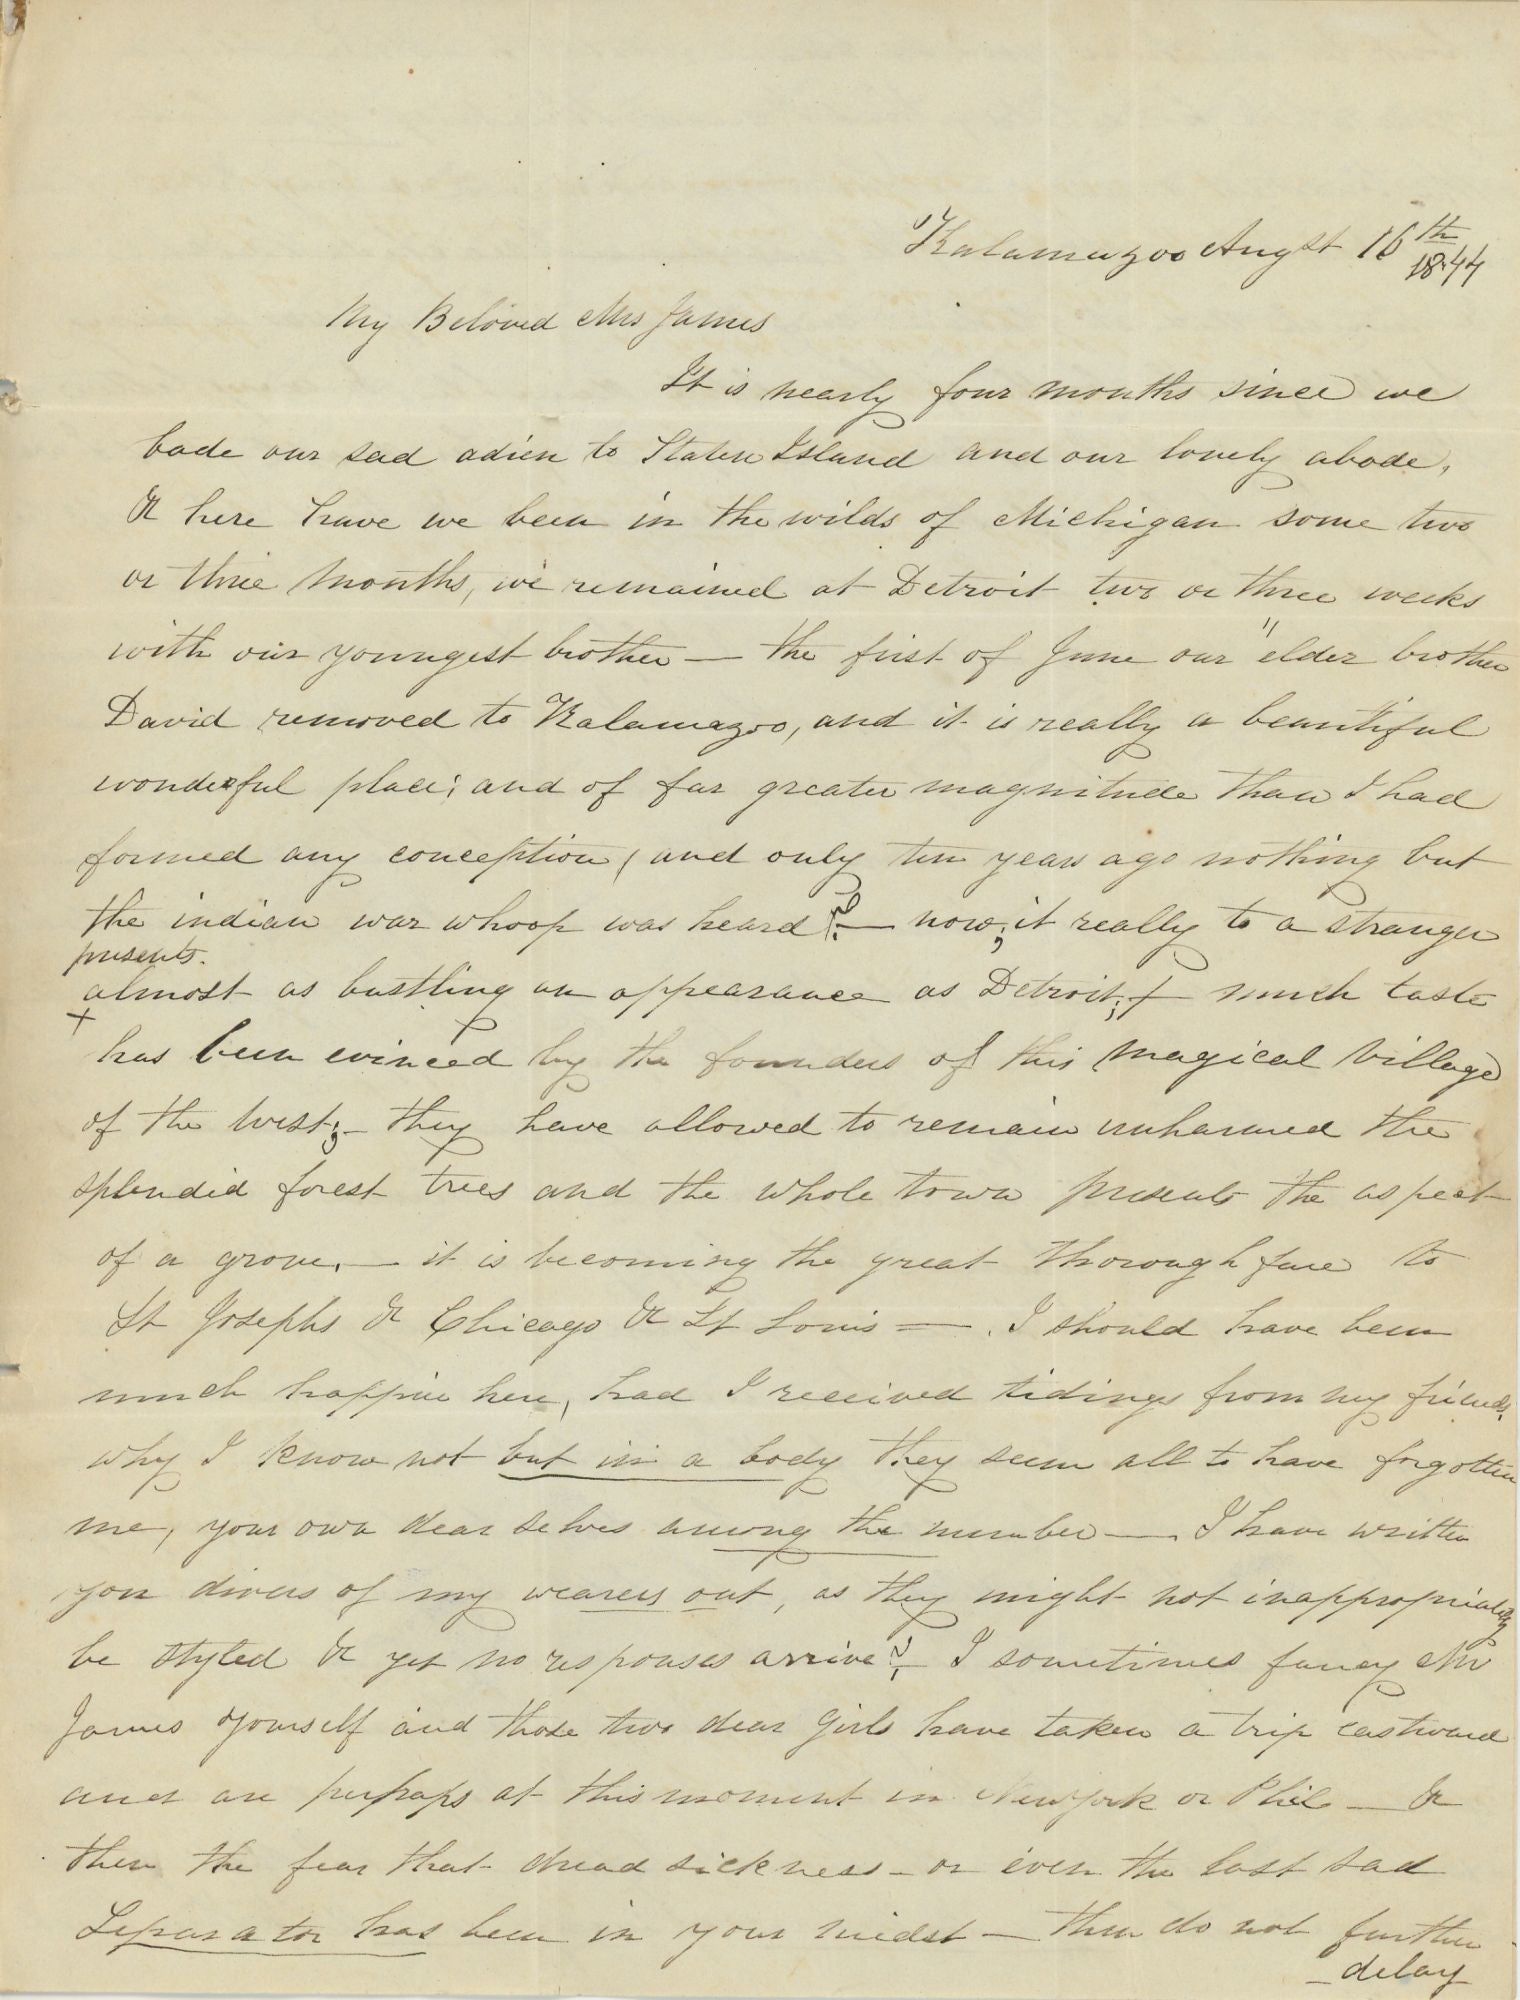 Kalamazoo Augst 16th
1844
My Beloved Mrs James
It is nearly four months since we
bade our sad adieu to Staten Island and our lovely abode,
& here have we been in the wilds of Michigan some two
or three months, we remained at Detroit two or three weeks
with our youngest brother — the first of June our "elder brother
David removed to Kalamazoo, and it is really a beautiful
wonderful place; and of far greater magnitude than I had
formed any conception, and only ten years ago nothing but
the indian war whoop was heard — now; it really to a stranger
presents.
almost as bustling an appearance as Detroit; + much taste
has been evinced by the founders of this magical village
of the west; — they have allowed to remain unharmed the
splendid forest trees and the whole town presents the aspect
of a grove, — it is becoming the great thorough fare to
St Josephs & Chicago & St Louis — . I should have been
much happier here, had I received tidings from my friends,
why I know not but in a body they seem all to have forgotten
me, your own dear selves among the number — . I have written
you divers of my wearers out, as they might not inappropriately
be styled & yet no responses arrive? — I sometimes fancy Mr
James yourself and those two dear girls have taken a trip eastward
and are perhaps at this moment in Newyork or Phil — &
then the fear that dread sickness — or even the last sad
Separator has been in your midst — then do not further
— delay